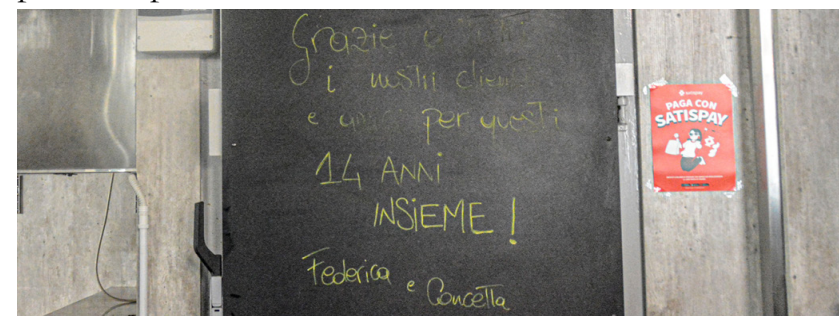 Grazie a tutti
i nostri clienti
e amici per questi
14 ANNI
INSIEME!
Federica e Concetta
satispay
PAGA CON
SATISPAY